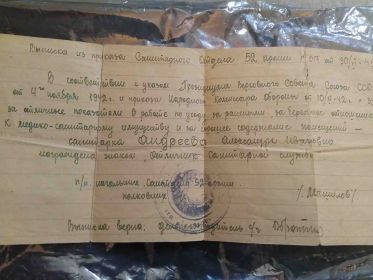 Выписка из приказа Санитарного Отдела 52 армии №07 от 30/
В соответствии с указом Президиума Верховного Совета Союза ССР
от 4го ноября 1942 г. и приказа Народного Комиссара Обороны от 10/
за отличные показатели в работе по уходу за ранеными, за бережное отношение
к медико-санитарному имуществу и за хорошее содержание помещений –
санитарка Андреева Александра Ивановна
награждена знаком „Отличник санитарной службы
п/п. начальник Санотдела 52 армии
полковник /Машилов/
Выписка верна: